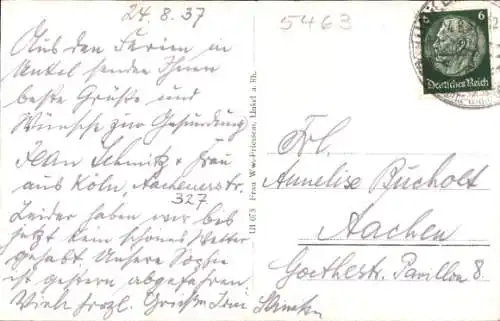 24.8.37
5463
Aus den Ferien in
Unkel senden Ihnen
beste Grüße und
Wünsche zur Gesundung
Schmitz + Frau
aus Köln, Aachenerstr.
327
Leider haben wir bis
jetzt kein schönes Wetter
gehabt. Unsere Sophie
ist gestern abgefahren.
Viele herzl. Grüße
Frau Wwe. Friessem, Unkel a. Rh.
6
Deutsches Reich
Frl.
Annelise Bucholt
Aachen
Goethestr. Pavillon 8